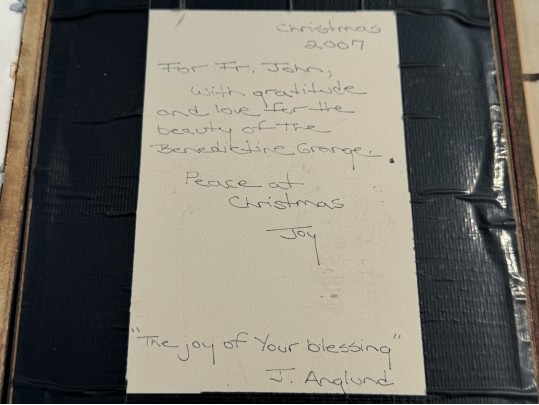 Christmas
2007
For Fr. John,
With gratitude
and love for the
beauty of The
Benedictine Grange.
Peace at
Christmas
Joy
"The joy of Your blessing"
J. Anglund